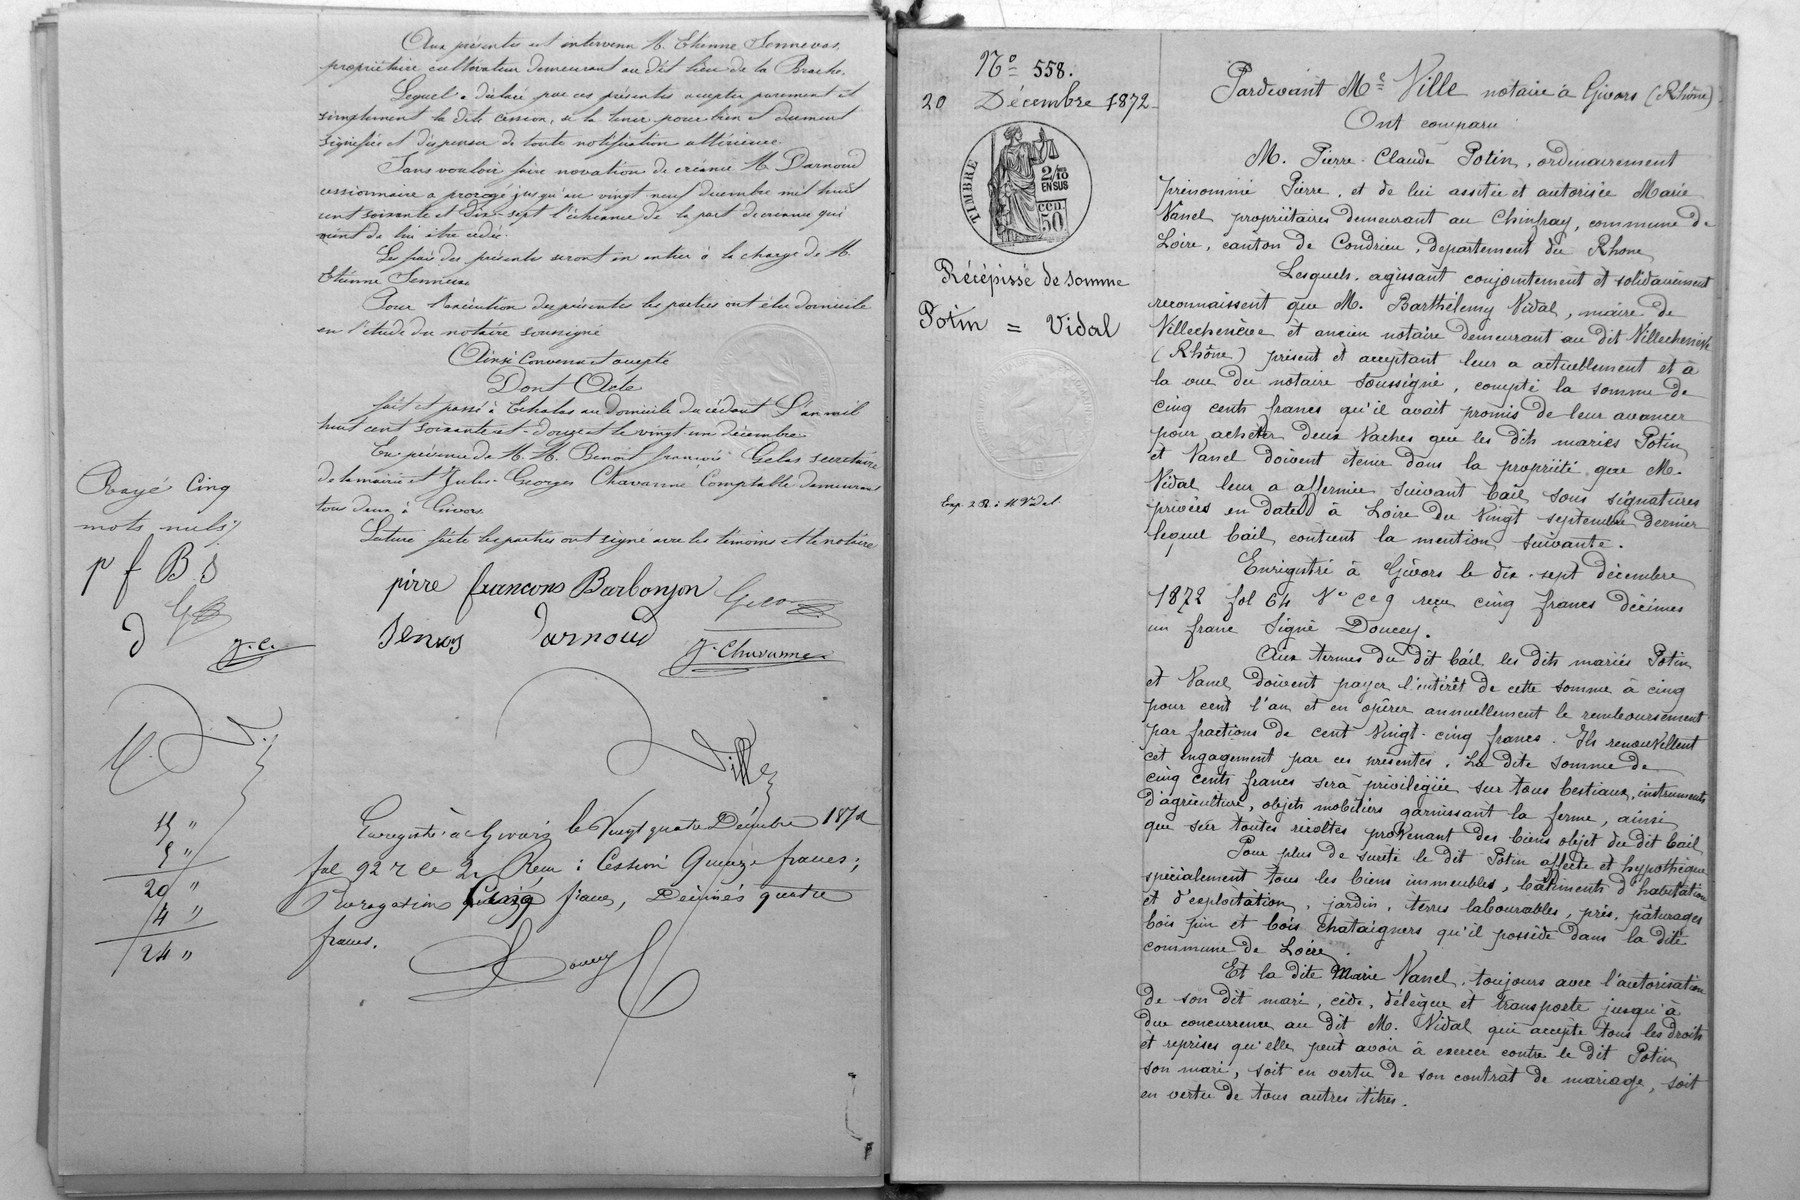 Aux présentes est intervenu M. Etienne Sennevas,
propriétaire cultivateur demeurant au dit lieu de la
Lequel a déclaré par ces présentes accepter purement et
simplement la dite cession, se la tenir pour bien et dument
signifiée et dispenser de toute notification ultérieure.
Sans vouloir faire novation de créance M. Darnoud
cessionnaire a prorogé jusqu'au vingt neuf decembre mil huit
cent soixante et dix-sept l'échéance de la part de créance qui
vient de lui être cédée.
Les frais des présentes seront en entier à la charge de M.
Etienne Sennevas
Pour l'exécution des présentes les parties ont élu domicile
en l'étude du notaire soussigné
Ainsi Convenu et accepté
Dont Acte
fait et passé à Echalas au domicile du cédant L'an mil
huit cent soixante et-douze et le vingt-un décembre.
En présence de M. M. Benoit françois Gelas secrétaire
de la mairie et Jules-Georges Chavanne Comptable demeurant
tous deux à Givors.
Lecture faite les parties ont signé avec les témoins et le notaire
Rayé cinq
mots nuls
p f B S
d
J. C.
pirre francons Barbonjon
Senvas Darnoud
J. Chavanne
Ville
15 "
5 "
20 "
4 "
24 "
Enregistré à Givors le Vingt quatre Décembre 1872
fol 92 r ce 2, Reçu : Cession Quinze francs;
Prorogation Cinq francs, Décimes quatre
francs.
Doucey
No 558.
20 Décembre 1872
TIMBRE
2/10 EN SUS
cen 50
Récépissé de somme
Potin = Vidal
Pardevant Me Ville notaire à Givors (Rhône)
Ont comparu
M. Pierre-Claude Potin, ordinairement
prénommé Pierre, et de lui assitée et autorisée Marie
Vanel propriétaires demeurant au Chinfray, commune de
Loire, canton de Condrieu, département du Rhone
Lesquels, agissant conjointement et solidairement
reconnaissent que M. Barthélemy Vidal, maire de
Villechenève et ancien notaire demeurant au dit Villechenève
(Rhône) présent et acceptant leur a actuellement et à
la vue du notaire soussigné, compté la somme de
cinq cents francs qu'il avait promis de leur avancer
pour acheter deux Vaches que les dits mariés Potin
et Vanel doivent tenir dans la propriété que M.
Vidal leur a affermée suivant bail sous signatures
privées en date à Loire du Vingt septembre dernier
lequel bail contient la mention suivante.
Enrigistré à Givors le dix-sept décembre
1872 fol 64 Vo ce 9 reçu cinq francs décimes
un franc Signé Doucey.
Aux termes du dit bail les dits mariés Potin
et Vanel doivent payer l'intérêt de cette somme à cinq
pour cent l'an et en opérer annuellement le remboursement
par fractions de cent Vingt-cinq francs. Ils renouvellent
cet engagement par ces présentes. La dite somme de
cinq cents francs sera privilégiée sur tous bestiaux, instruments
d'agriculture, objets mobiliers garnissant la ferme, ainsi
que sur toutes récoltes provenant des biens objet du dit bail
Pour plus de sureté le dit Potin affecte et hypothèque
spécialement tous les biens immeubles, bâtiments d'habitation
et d'exploitation, jardin, terres labourables, prés, pâturages
bois pin et bois chataigners qu'il possède dans la dite
commune de Loire.
Et la dite Marie Vanel, toujours avec l'autorisation
de son dit mari, cède, délègue et transporte jusqu'à
due concurrence au dit M. Vidal qui accepte tous les droits
et reprises qu'elle peut avoir à exercer contre le dit Potin
son mari, soit en vertu de son contrat de mariage, soit
en vertu de tous autres titres.